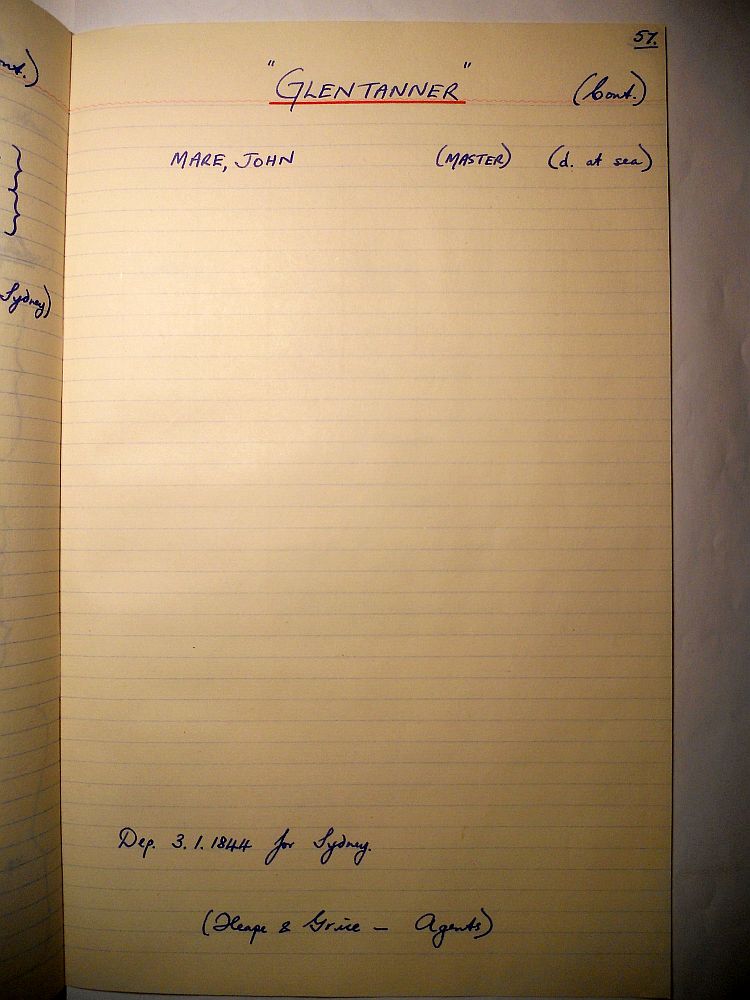 57.
"GLENTANNER" (Cont.)
MARE, JOHN (MASTER) (d. at sea)
Dep. 3.1.1844 for Sydney.
(Heape & Grice — Agents)
nt.)
Sydney)